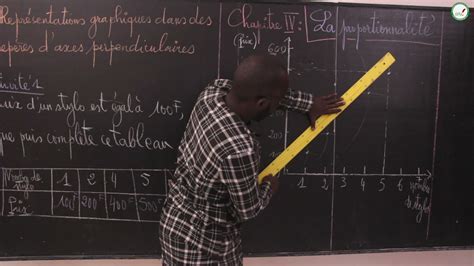 Représentations graphiques dans des
repères d'axes perpendiculaires
1
d'un stylo est égal à 100F,
que puis complète ce tableau
Nombre de stylo 1 2 4 5
Prix 100F 200F 400F 500F
Chapitre IV : La proportionnalité
(Prix)
600
200
1 2 3 4 5 6 7